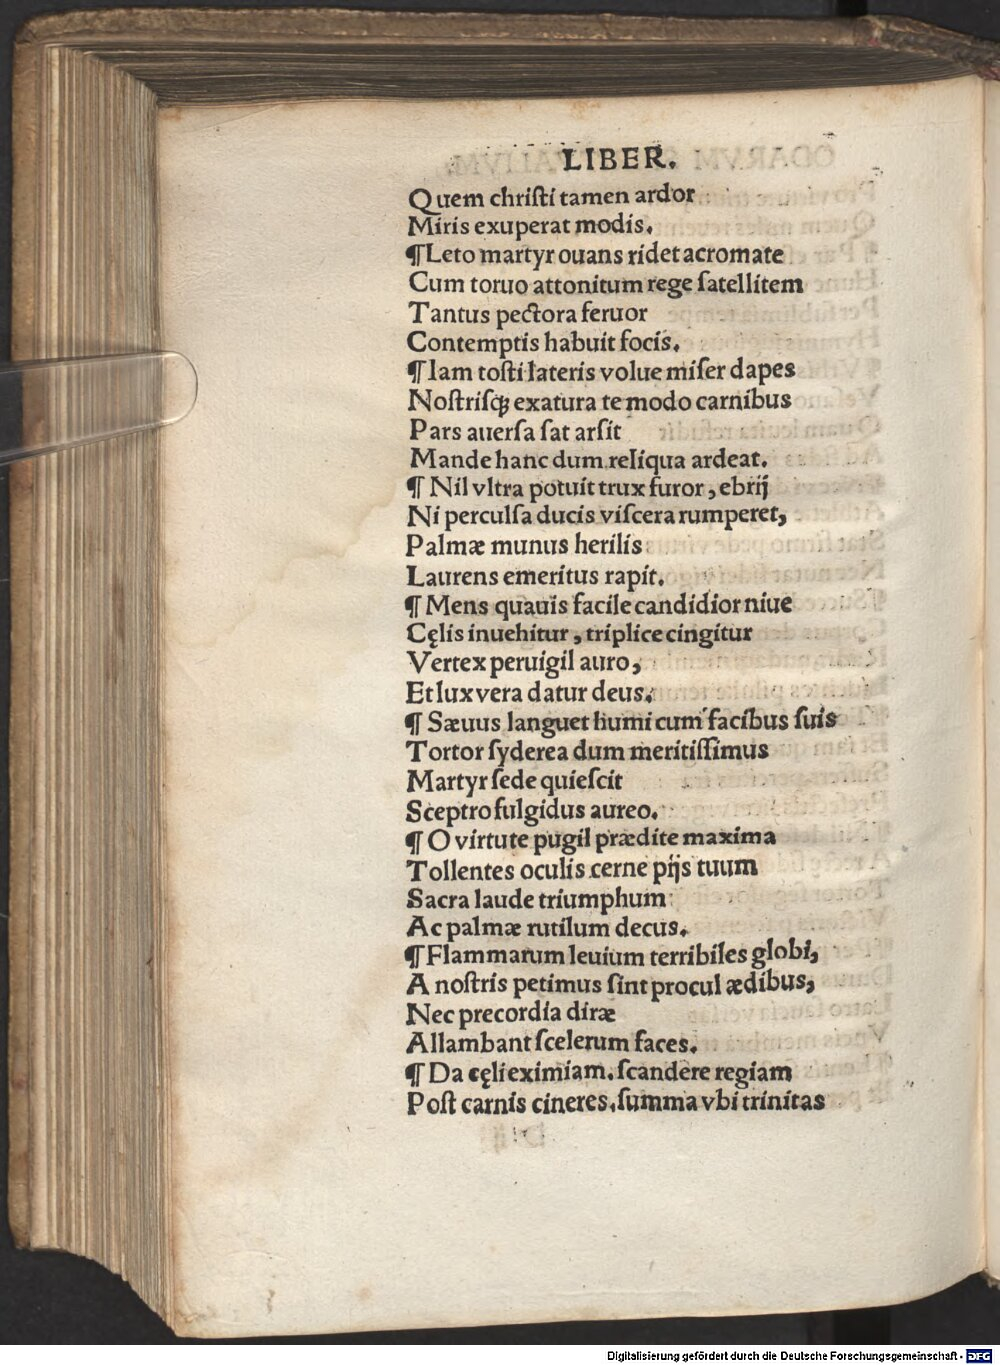 LIBER.
Quem chriſti tamen ardor
Miris exuperat modis.
¶Leto martyr ouans ridet acromate
Cum toruo attonitum rege ſatellitem
Tantus pectora feruor
Contemptis habuit focis.
¶Iam toſti lateris volue miſer dapes
Noſtriſqꝫ exatura te modo carnibus
Pars auerſa ſat arſit
Mande hanc dum reliqua ardeat.
¶ Nil vltra potuit trux furor, ebrij
Ni perculſa ducis viſcera rumperet,
Palmæ munus herilis
Laurens emeritus rapit.
¶ Mens quauis facile candidior niue
Cęlis inuehitur, triplice cingitur
Vertex peruigil auro,
Et lux vera datur deus.
¶ Sæuus languet humi cum facibus ſuis
Tortor ſyderea dum meritiſſimus
Martyr ſede quieſcit
Sceptro fulgidus aureo.
¶ O virtute pugil prædite maxima
Tollentes oculis cerne pijs tuum
Sacra laude triumphum
Ac palmæ rutilum decus.
¶Flammarum leuium terribiles globi,
A noſtris petimus ſint procul ædibus,
Nec precordia diræ
Allambant ſcelerum faces.
¶ Da cęli eximiam. ſcandere regiam
Poſt carnis cineres, ſumma vbi trinitas
Digitalisierung gefördert durch die Deutsche Forschungsgemeinschaft - DFG